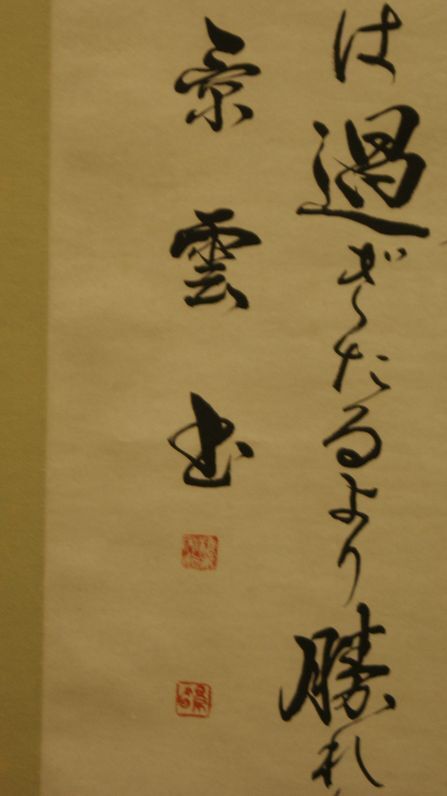 は過ぎたるより勝れ
景雲書